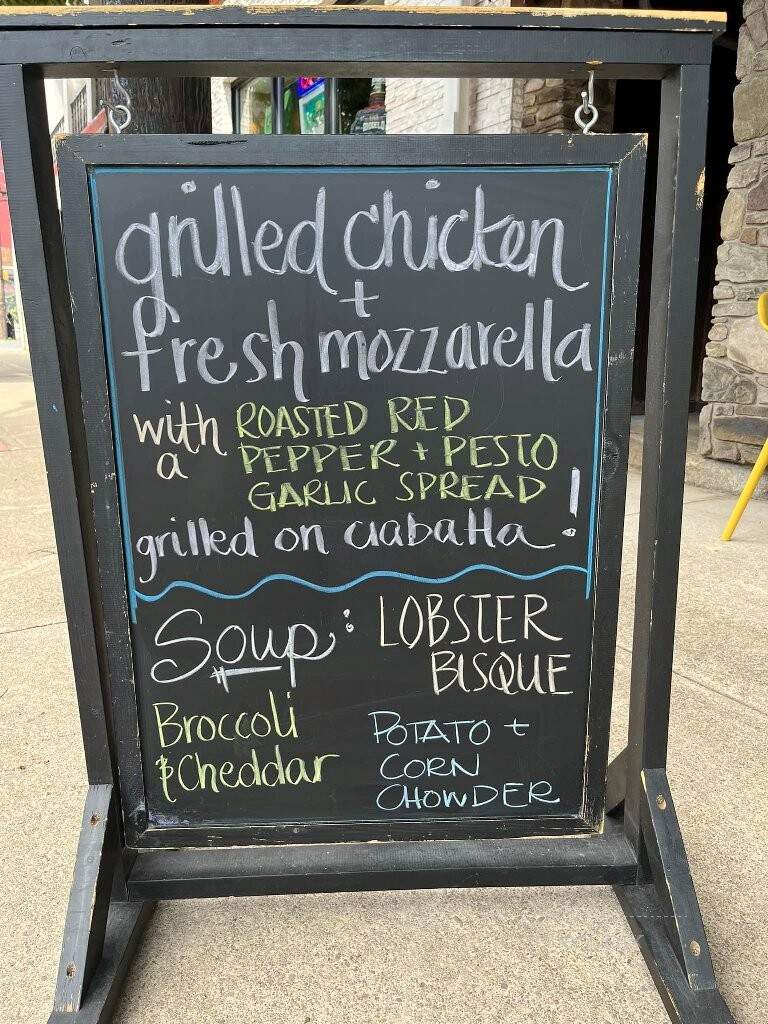 grilled chicken
+
fresh mozzarella
with a ROASTED RED
PEPPER + PESTO
GARLIC SPREAD
grilled on ciabatta!
Soup: LOBSTER
BISQUE
Broccoli
& Cheddar
POTATO +
CORN
CHOWDER